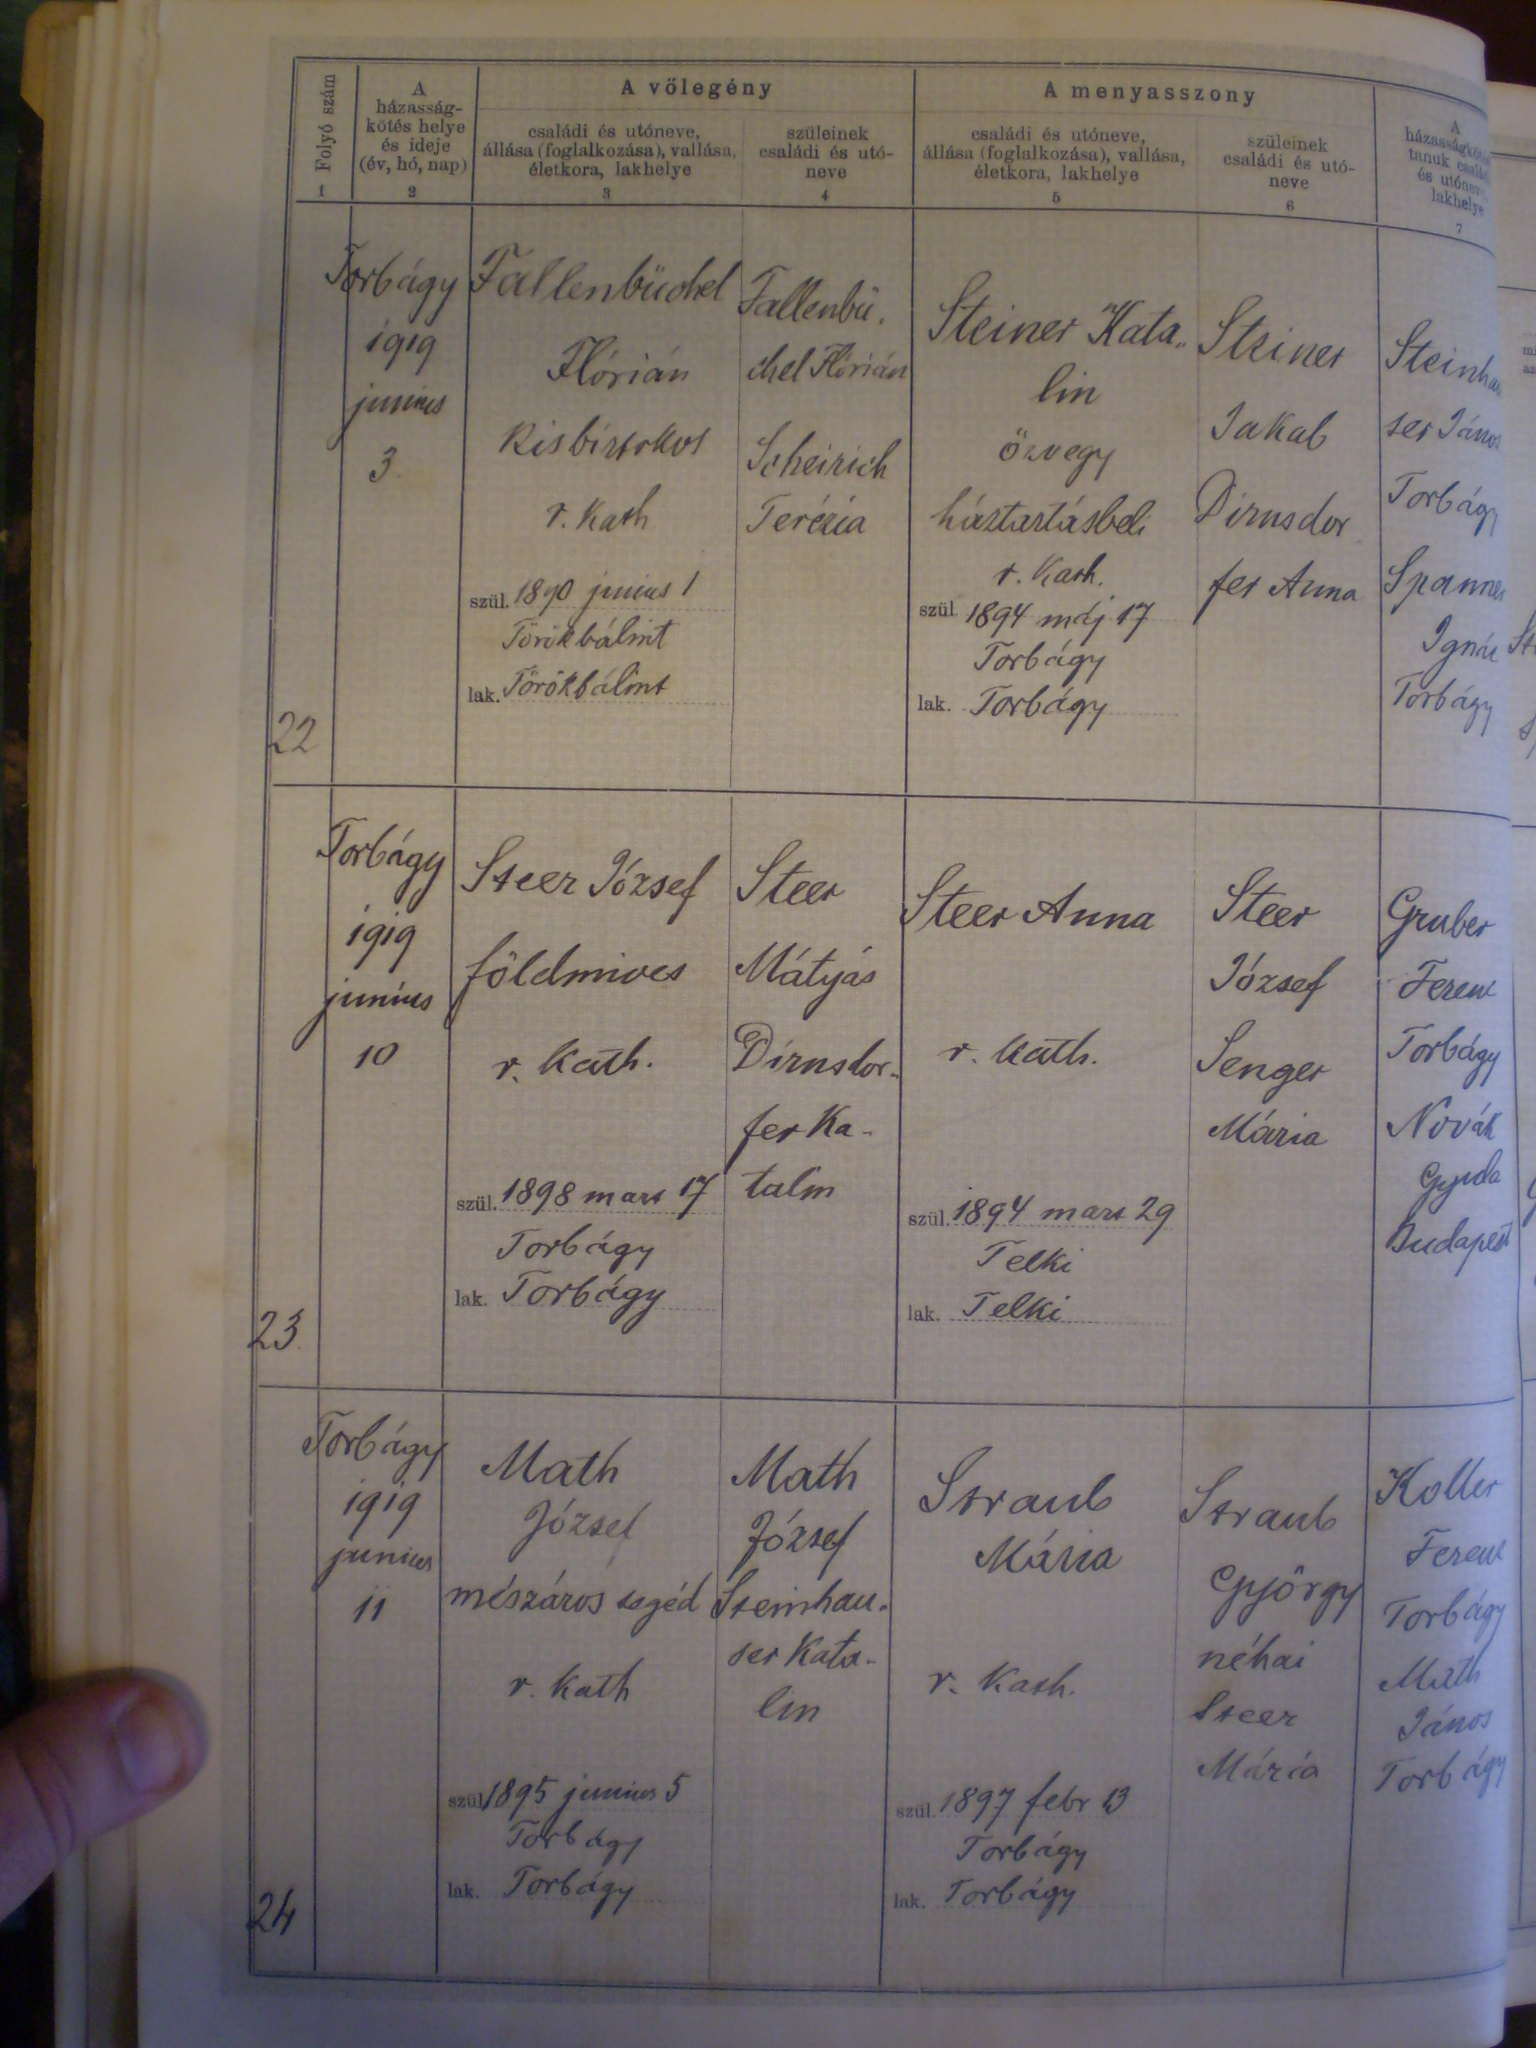 Folyó szám
1
A
házasság-
kötés helye
és ideje
(év, hó, nap)
2
A vőlegény
családi és utóneve,
állása (foglalkozása), vallása,
életkora, lakhelye
3
szüleinek
családi és utó-
neve
4
A menyasszony
családi és utóneve,
állása (foglalkozása), vallása,
életkora, lakhelye
5
szüleinek
családi és utó-
neve
6
A
lakhelye
7
22
Torbágy
1919
junius
3.
Fallenbüchel
Flórián
kisbirtokos
r. kath
szül. 1890 junius 1
Törökbálint
lak. Törökbálint
Fallenbü-
chel Flórián
Scheirich
Terézia
Steiner Kata-
lin
özvegy
háztartásbeli
r. Kath.
szül. 1894 máj 17
Torbágy
lak. Torbágy
Steiner
Jakab
Dirnsdor
fer Anna
Steinhau
ser János
Torbágy
Spanner
Ignác
Torbágy
23.
Torbágy
1919
junius
10
Steer József
földmives
r. kath.
szül. 1898 mart 17
Torbágy
lak. Torbágy
Steer
Mátyás
Dirnsdor-
fer Ka-
talin
Steer Anna
r. kath.
szül. 1894 mart 29
Telki
lak. Telki
Steer
József
Senger
Mária
Gruber
Ferenc
Torbágy
Novák
Gyula
Budapest
24
Torbágy
1919
junius
11
Math
József
mészáros segéd
r. kath
szül. 1895 junius 5
Torbágy
lak. Torbágy
Math
József
Steinhau-
ser Kata-
lin
Straub
Mária
r. Kath.
szül. 1897 febr 13
Torbágy
lak. Torbágy
Straub
György
néhai
Steer
Mária
Koller
Ferenc
Torbágy
Math
János
Torbágy